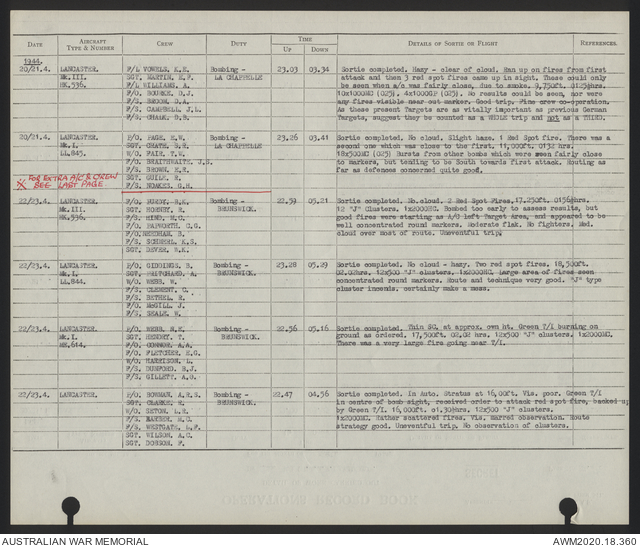 DATE AIRCRAFT TYPE & NUMBER CREW DUTY TIME UP DOWN DETAILS OF SORTIE OR FLIGHT REFERENCES.
1944.
20/21.4. LANCASTER. F/L VOWELS, R.E. Bombing - 23.03 03.34 Sortie completed. Hazy - clear of cloud. Ran up on fires from first
Mk.III. SGT. MARTIN, E.F. LA CHAPELLE attack and then 3 red spot fires came up in sight. These could only
F/L WILLIAMS, A. be seen when a/c was fairly close, due to smoke. 9,750ft. 0125½hrs.
F/O. BOURNE, D.J. 10x1000MC (025). 4x1000GP (025). No results could be seen, nor were
F/S. BROOM, D.A. any fires visible near out marker. Good trip. Fine crew co-operation.
F/S. CAMPBELL, J.L. As these present Targets are as vitally important as previous German
SGT. CHALK, D.B. Targets, suggest they be counted as a WHOLE trip and not as a THIRD.
20/21.4. LANCASTER. F/O. PAGE, R.W. Bombing - 23.26 03.41 Sortie completed. No cloud. Slight haze. 1 Red Spot fire. There was a
Mk.I. SGT. LA CHAPELLE second one which was close to the first. 11,000ft. 0132 hrs.
LL.845. W/O. FAIR, T.W. 18x500MC (025) Bursts from other bombs which were seen fairly close
F/O. BRAITHWAITE, J.S. to markers, but tending to be South towards first attack. Routing as
F/S. BROWN, E.R. far as defences concerned quite good.
FOR EXTRA A/C & CREW
SGT. GUILE, R.
SEE LAST PAGE
F/S. NOAKES, G.H.
22/23.4. LANCASTER. Bombing - 22.59 05.21 Sortie completed. No cloud. 2 Red Spot Fires, 17,250ft.
Mk.III. SGT. HORNBY, R. BRUNSWICK. 12 "J" Clusters. 1x2000MC. Bombed too early to assess results, but
F/S. HIND, W.C. good fires were starting as A/C left Target Area, and appeared to be
F/O. PAPWORTH, C.G. well concentrated round markers. Moderate flak. No fighters. Med.
F/O. NEEDHAM, B. cloud over most of route. Uneventful trip.
F/S.
SGT.
22/23.4. LANCASTER. P/O. GIDDINGS, B. Bombing - 23.28 05.29 Sortie completed. No cloud - hazy. Two red spot fires. 18,500ft.
Mk.I. SGT. PRITCHARD, A. BRUNSWICK. 02.02hrs. 12x500 "J" clusters. 1x2000MC. Large area of fires seen
LL.844. W/O. WEBB, W. concentrated round markers. Route and technique very good. "J" type
F/S. CLEMENT, C. cluster incends. certainly make a mess.
F/S. BETHEL, R.
F/O. McGILL, J.
F/S. SEALE, W.
22/23.4. LANCASTER. P/O. WEBB, N.E. Bombing - 22.56 05.16 Sortie completed. Thin SC. at approx. own ht. Green T/I burning on
Mk.I. SGT. HENORY, T. BRUNSWICK. ground as ordered. 17,500ft. 02.02 hrs. 12x500 "J" clusters. 1x2000MC.
ME.614. F/O. CONNOR, A.A. There was a very large fire going near T/I.
F/O. FLETCHER, E.G.
W/O. HARRISON, L.
F/S. DUNFORD, B.J.
F/S. GILLETT, A.D.
22/23.4. LANCASTER. F/O. BOWMAN, A.R.S. Bombing - 22.47 04.56 Sortie completed. In Auto. Stratus at 16,00ft. Vis. poor. Green T/I
SGT. CLARKE, R. BRUNSWICK. in centre of bomb sight, received order to attack red spot fire, backed up
W/O. EETON, L.E. by Green T/I. 16,00ft. 01.39½hrs. 12x500 "J" clusters.
F/S. H.C. 1x2000MC. Rather scattered fires. Vis. marred observation. Route
F/S. WESTGATE, L.F. strategy good. Uneventful trip. No observation of clusters.
SGT. WILSON, A.C.
SGT. DOBSON, P.
AUSTRALIAN WAR MEMORIAL AWM2020.18.360